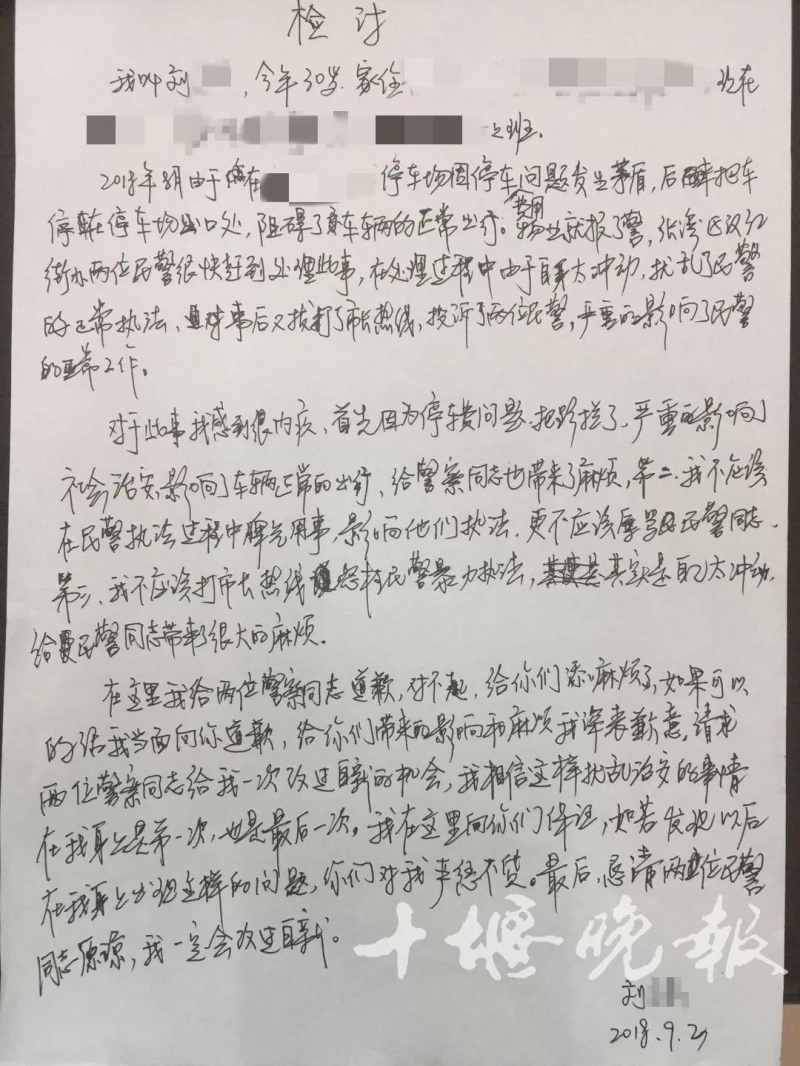 检讨
我叫刘 ，今年30岁 家住 现在
上班。
2018年8月由于在 停车场因停车费用问题发生茅盾，后把车
停在停车场出口处，阻碍了车辆的正常出行。物业就报了警，张湾区汉江
街办两位民警很快赶到处理此事，在处理过程中由于自己太冲动，扰乱了民警
的正常执法，事后又拨打了市长热线，投诉了两位民警，严重的影响了民警
的正常工作。
对于此事我感到很内疚，首先因为停车费问题把路拦了，严重的影响了
社会治安，影响了车辆正常的出行，给警察同志也带来了麻烦，第二、我不应该
在民警执法过程中脾气用事，影响他们执法，更不应该辱骂民警同志。
第三、我不应该打市长热线 民警暴力执法，其实是自己太冲动，
给民警同志带来了很大的麻烦。
在这里我给两位警察同志道歉，对不起，给你们添麻烦了，如果可以
的话我当面向你道歉，给你们带来的影响和麻烦我深表歉意，请求
两位警察同志给我一次改过自新的机会，我相信这样扰乱治安的事情
在我身上是第一次，也是最后一次。我在这里向你们保证，如若发现以后
在我身上出现这样的问题，你们对我严惩不贷。最后，恳请两位民警
同志原谅，我一定会改过自新。
十堰晚报
刘
2018.9.2